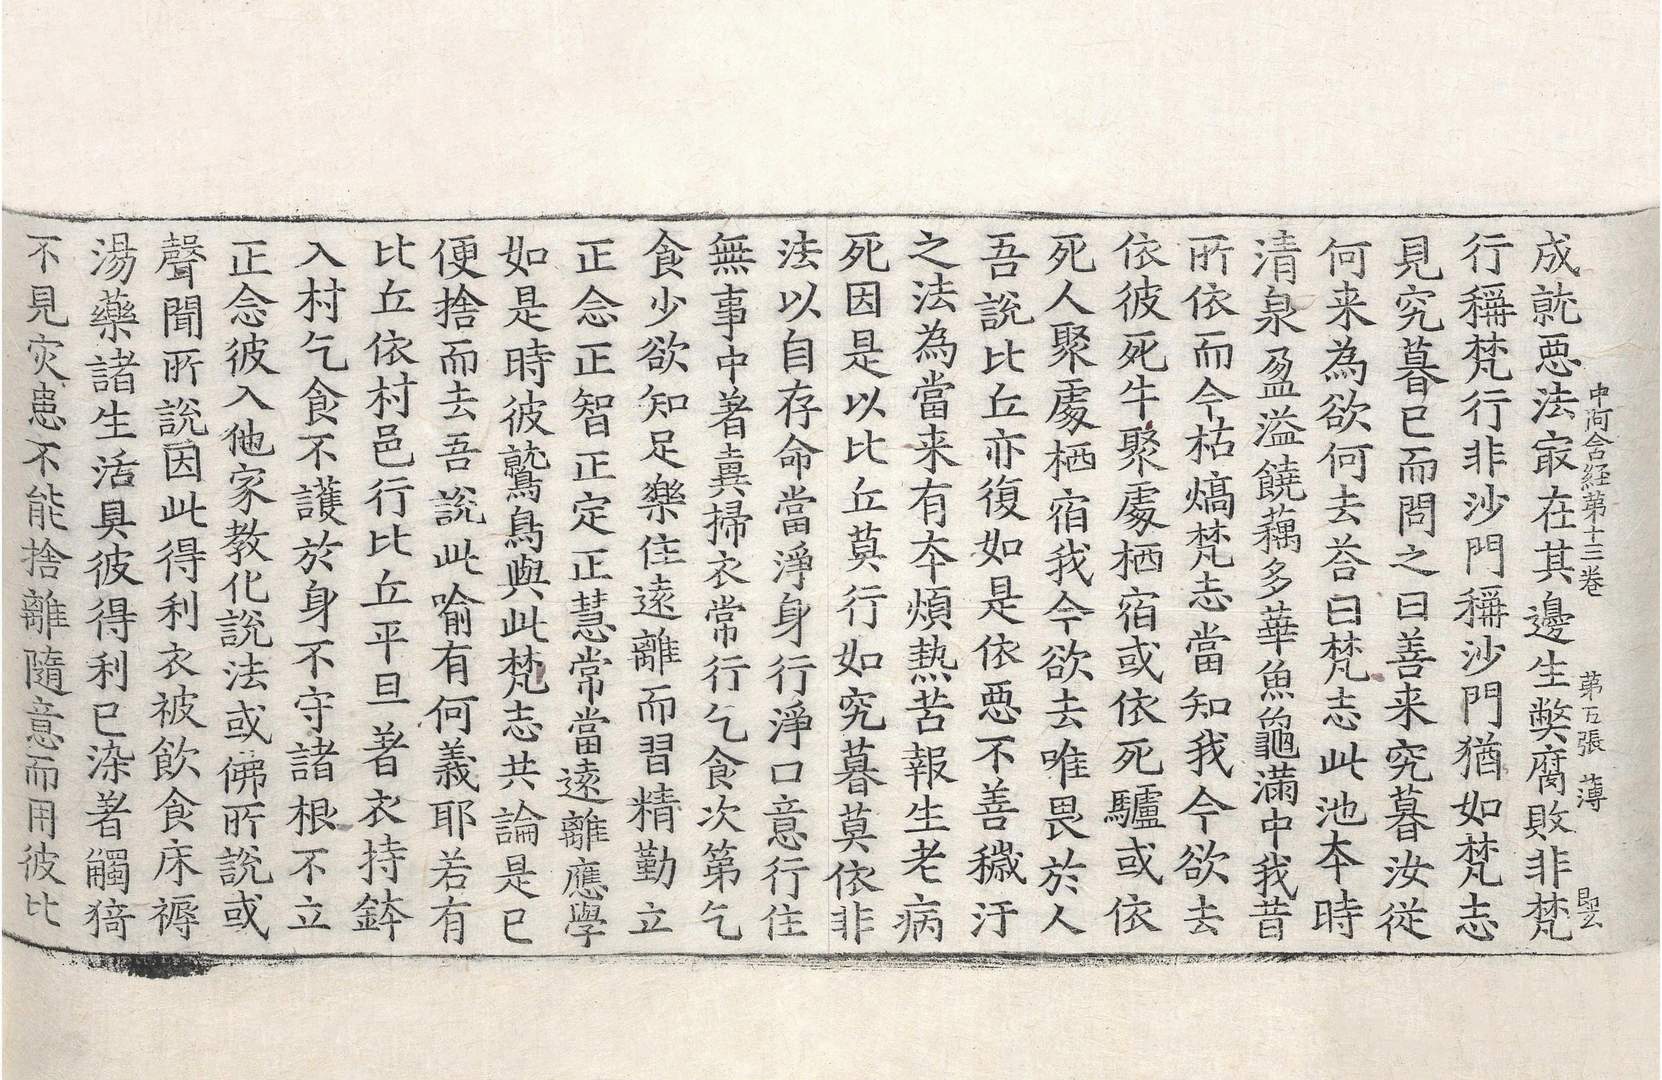 中阿含経苐十三卷　苐五張　薄
成就悪法冣在其邊生獘腐敗非梵
行稱梵行非沙門稱沙門猶如梵志
見究暮已而問之曰善来究暮汝従
何来為欲何去荅曰梵志此池夲時
清泉盈溢饒藕多華魚龜滿中我昔
所依而今枯熇梵志當知我今欲去
依彼死牛聚處栖宿或依死驢或依
死人聚處栖宿我今欲去唯畏於人
吾説比丘亦復如是依悪不善穢汙
之法為當来有夲煩熱苦報生老病
死因是以比丘莫行如究暮莫依非
法以自存命當淨身行淨口意行住
無事中著糞掃衣常行乞食次第乞
食少欲知足樂住遠離而習精勤立
正念正智正定正慧常當遠離應學
如是時彼鷲鳥與此梵志共論是已
便捨而去吾説此喻有何義耶若有
比丘依村邑行比丘平旦著衣持鉢
入村乞食不護於身不守諸根不立
正念彼入他家教化説法或佛所説或
聲聞所説因此得利衣被飲食床褥
湯藥諸生活具彼得利已染著觸猗
不見灾患不能捨離隨意而用彼比